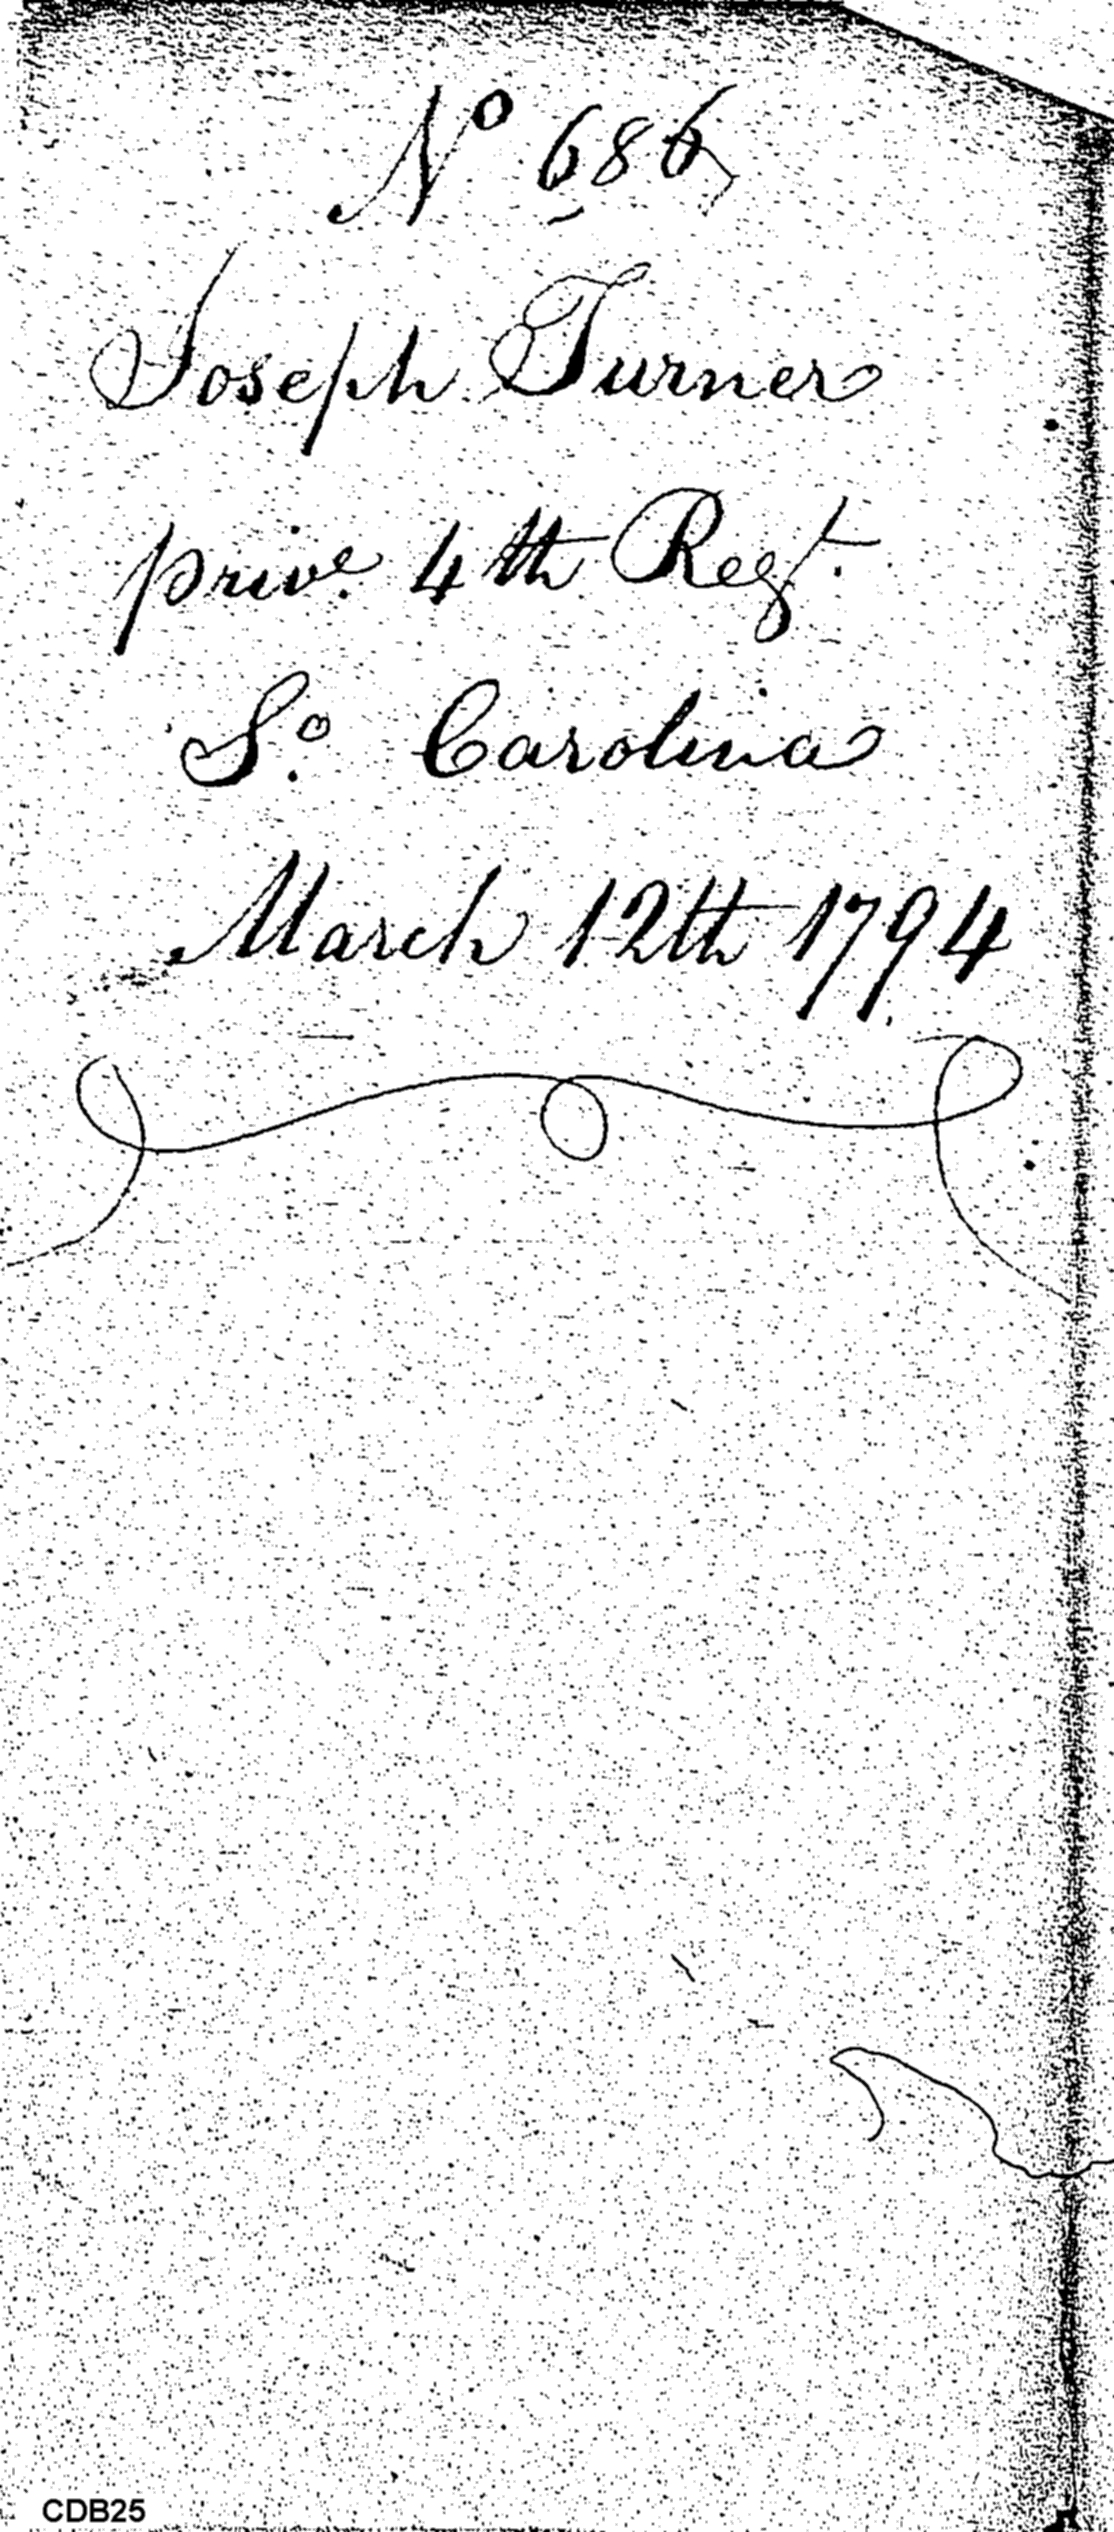 No 686
Joseph Turner
prive. 4th Regt.
So. Carolina
March 12th 1794
CDB25